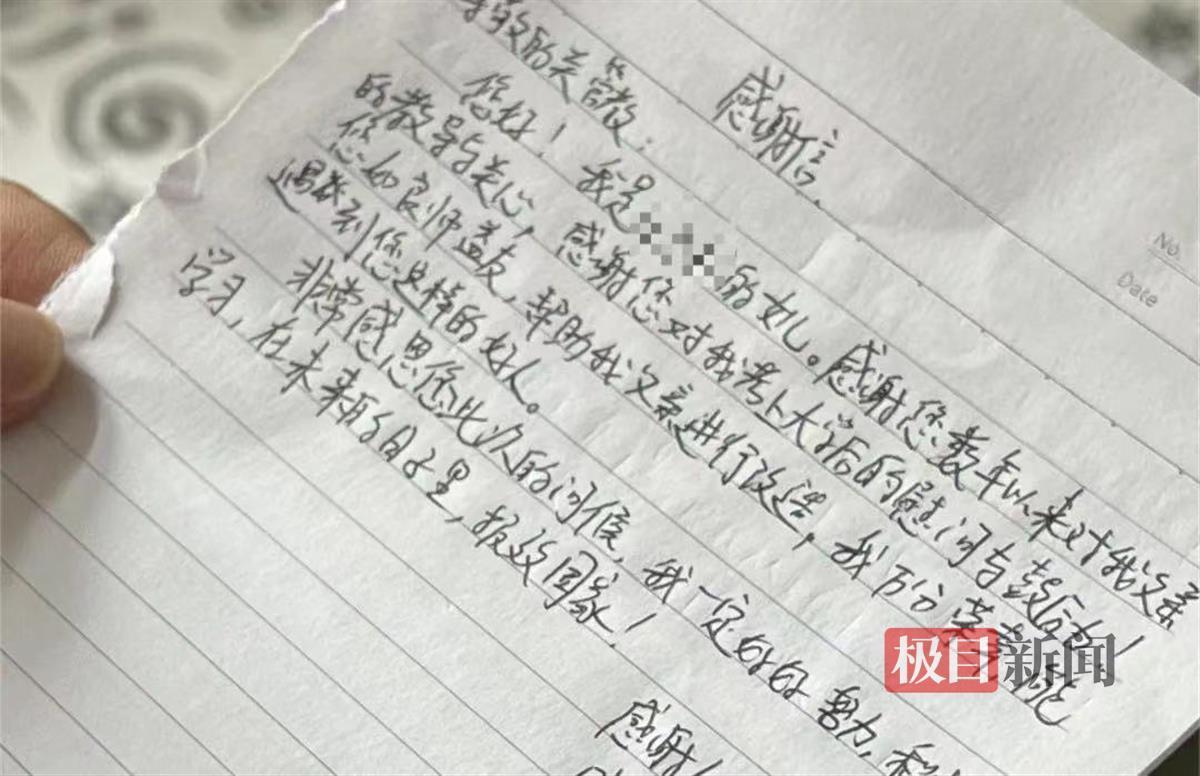 No.
Date
感谢信
尊敬的关管教：
您好！我是的女儿。感谢您数年以来对我父亲
的教导与关心，感谢您对我考上大学后的慰问与鼓励！
您如良师益友，帮助我父亲进行改造，我万分荣幸能
遇到您这样的好人。
非常感恩您此次的问候，我一定好好努力，
学习，在未来的日子里，报效国家！
感谢！
极目新闻